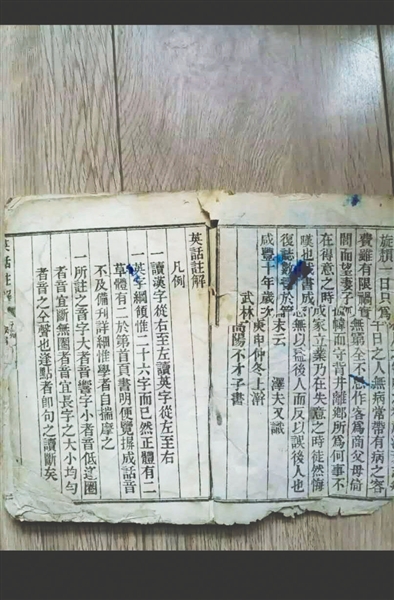 一日只為千日之人無病常帶有病之容
費雖有限禍實無
作客為商父母倚
閭而望妻子
而守背井離鄉所為何事不
在得意之時成家立業乃在失意之時徒然悔
嘆也
書成
無以益後人而反以誤後人也
復誌數
末云 澤夫又識
咸豐十年歲次庚申仲冬上澣
武林高陽不才子書
英話註解
凡例
一讀漢字從右至左讀英字從左至右
一英字綱領惟二十六字而已然正體有二
草體有二於第首頁書明便覽揖成話音
不及備刊詳細惟學者自揣摩之
一所註之音字大者音響字小者音低逢圈
者音宜斷無圈者音宜長字之大小均勻
者音之全聲也逢點者即句之讀斷矣
英話註解